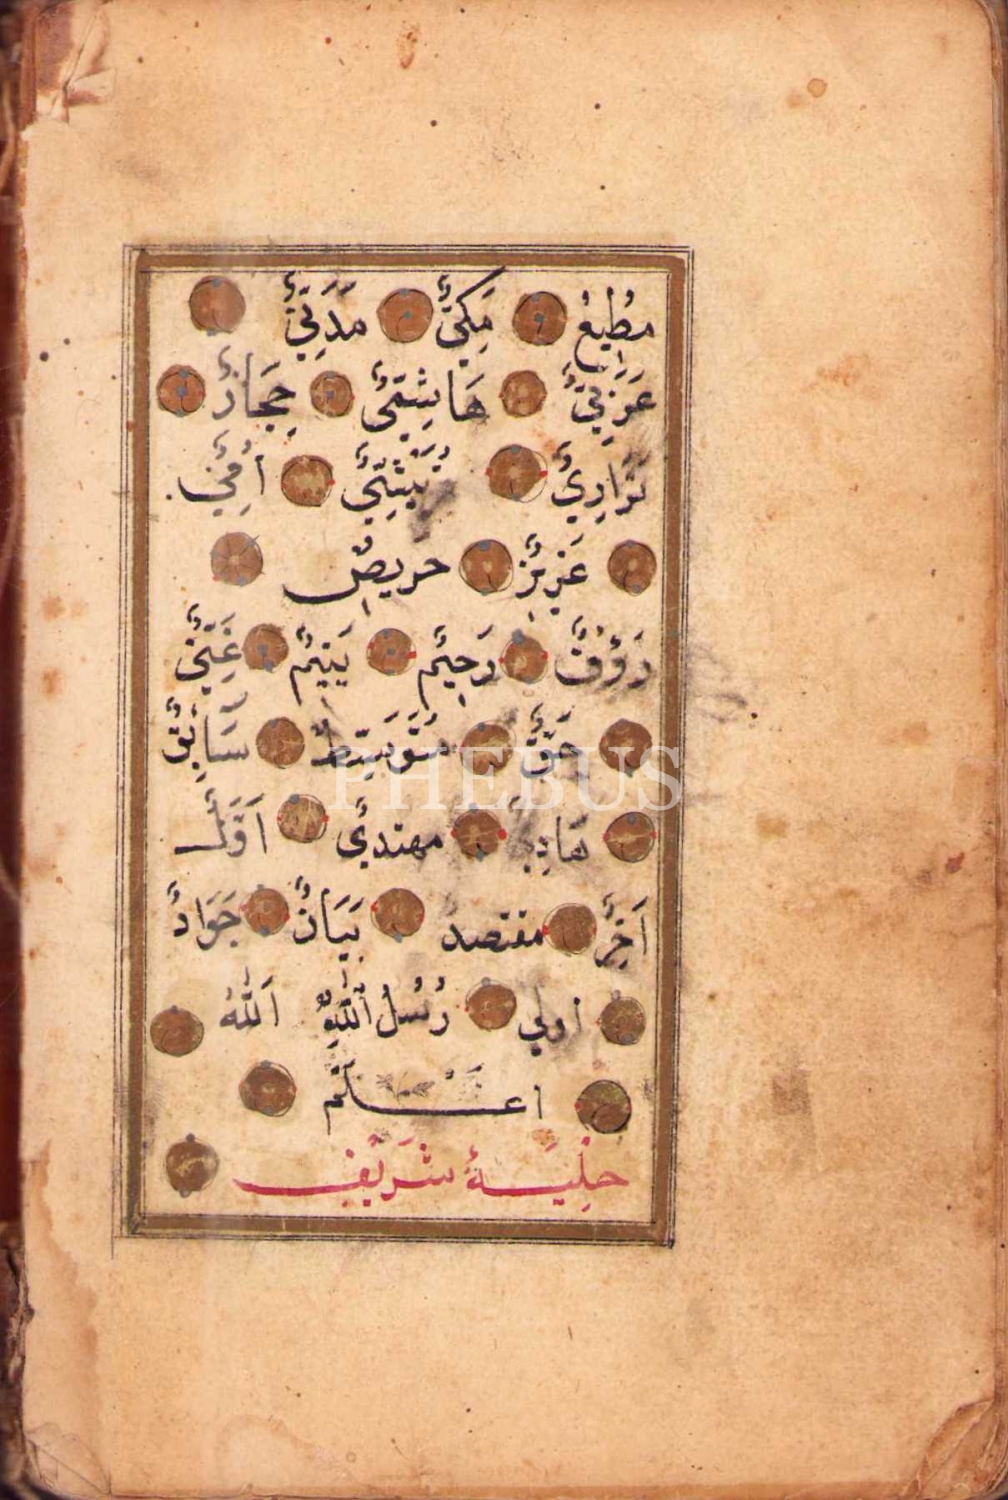 مُطِيعٌ مَكِّيٌّ مَدَنِيٌّ
عَرَبِيٌّ هَاشِمِيٌّ حِجَازٌ
نَزَارِيٌّ أُمِّيٌّ
عَزِيزٌ حَرِيصٌ
رَؤُفٌ رَحِيمٌ يَتِيمٌ غَنِيٌّ
حَقٌّ مُتَوَسِّطٌ سَابِقٌ
هَادِي مهتدي اَوَّلٌ
اَخِرٌ مقتصد بَيَانٌ جَوَادٌ
اولي رُسُلُ اللّٰهِ اَللّٰهُ
اعلم
حِلْيَۀ شَرِيف
PHEBUS